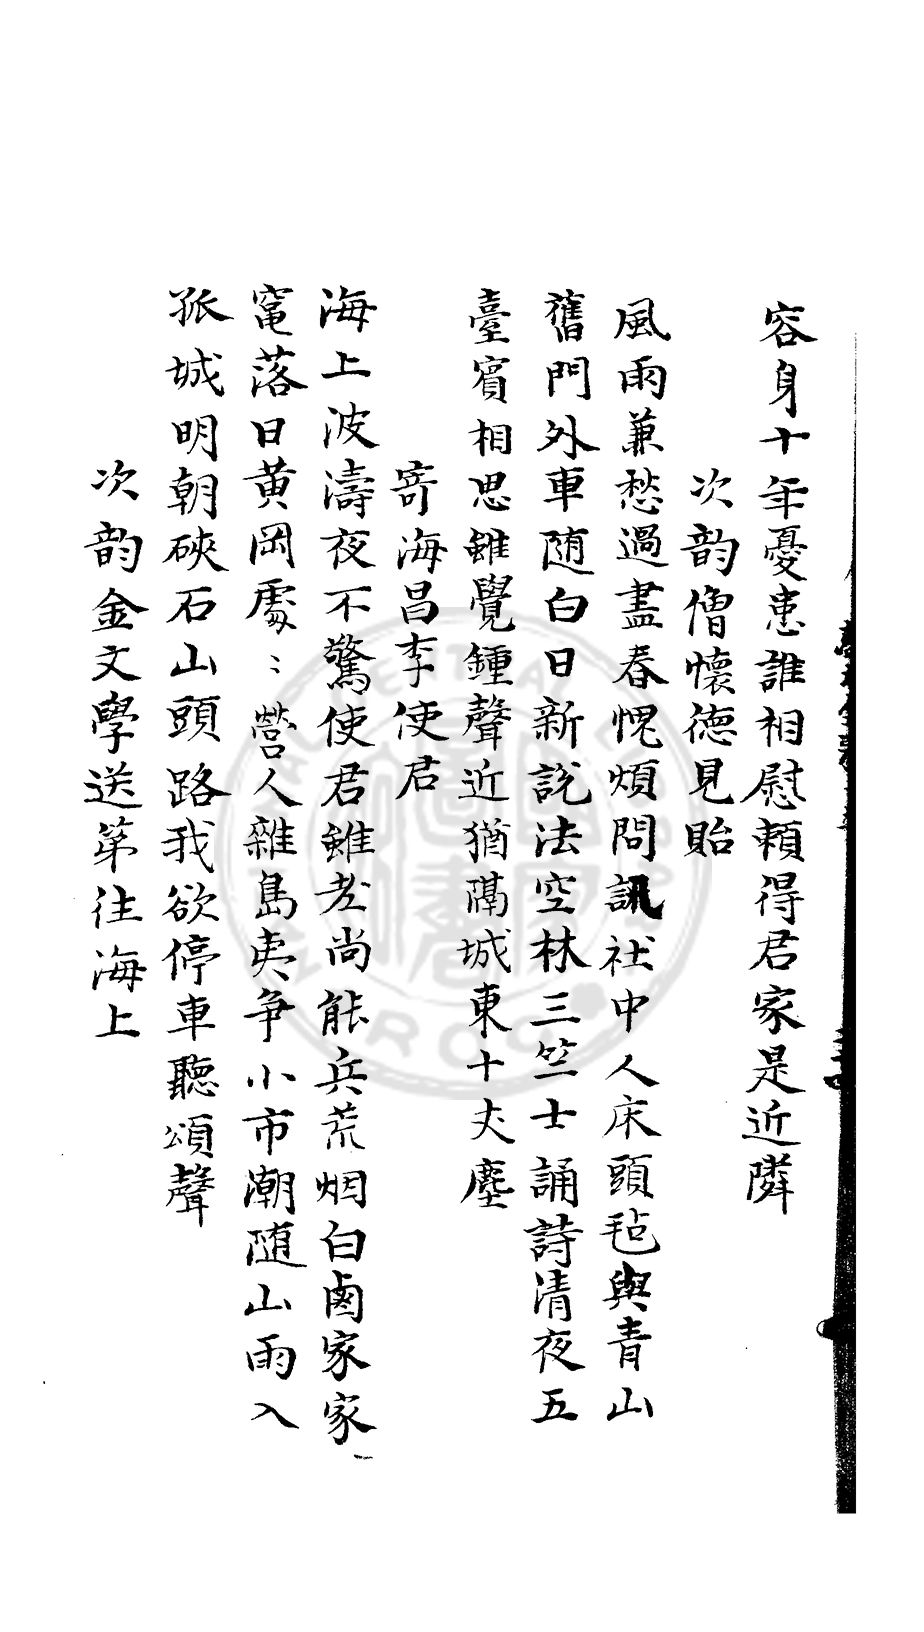 容身十年憂患誰相慰頼得君家是近隣
次韵僧懷德見貽
風雨兼愁過盡春愧煩問訊社中人床頭毡與青山
舊門外車随白日新說法空林三竺士誦詩清夜五
臺賓相思雖覺鍾聲近猶隔城東十丈塵
寄海昌李使君
海上波濤夜不驚使君雖老尚能兵荒烟白鹵家家
竃落日黄岡處〻營人雜島夷争小市潮随山雨入
孤城明朝硤石山頭路我欲停車聽頌聲
次韵金文學送第往海上